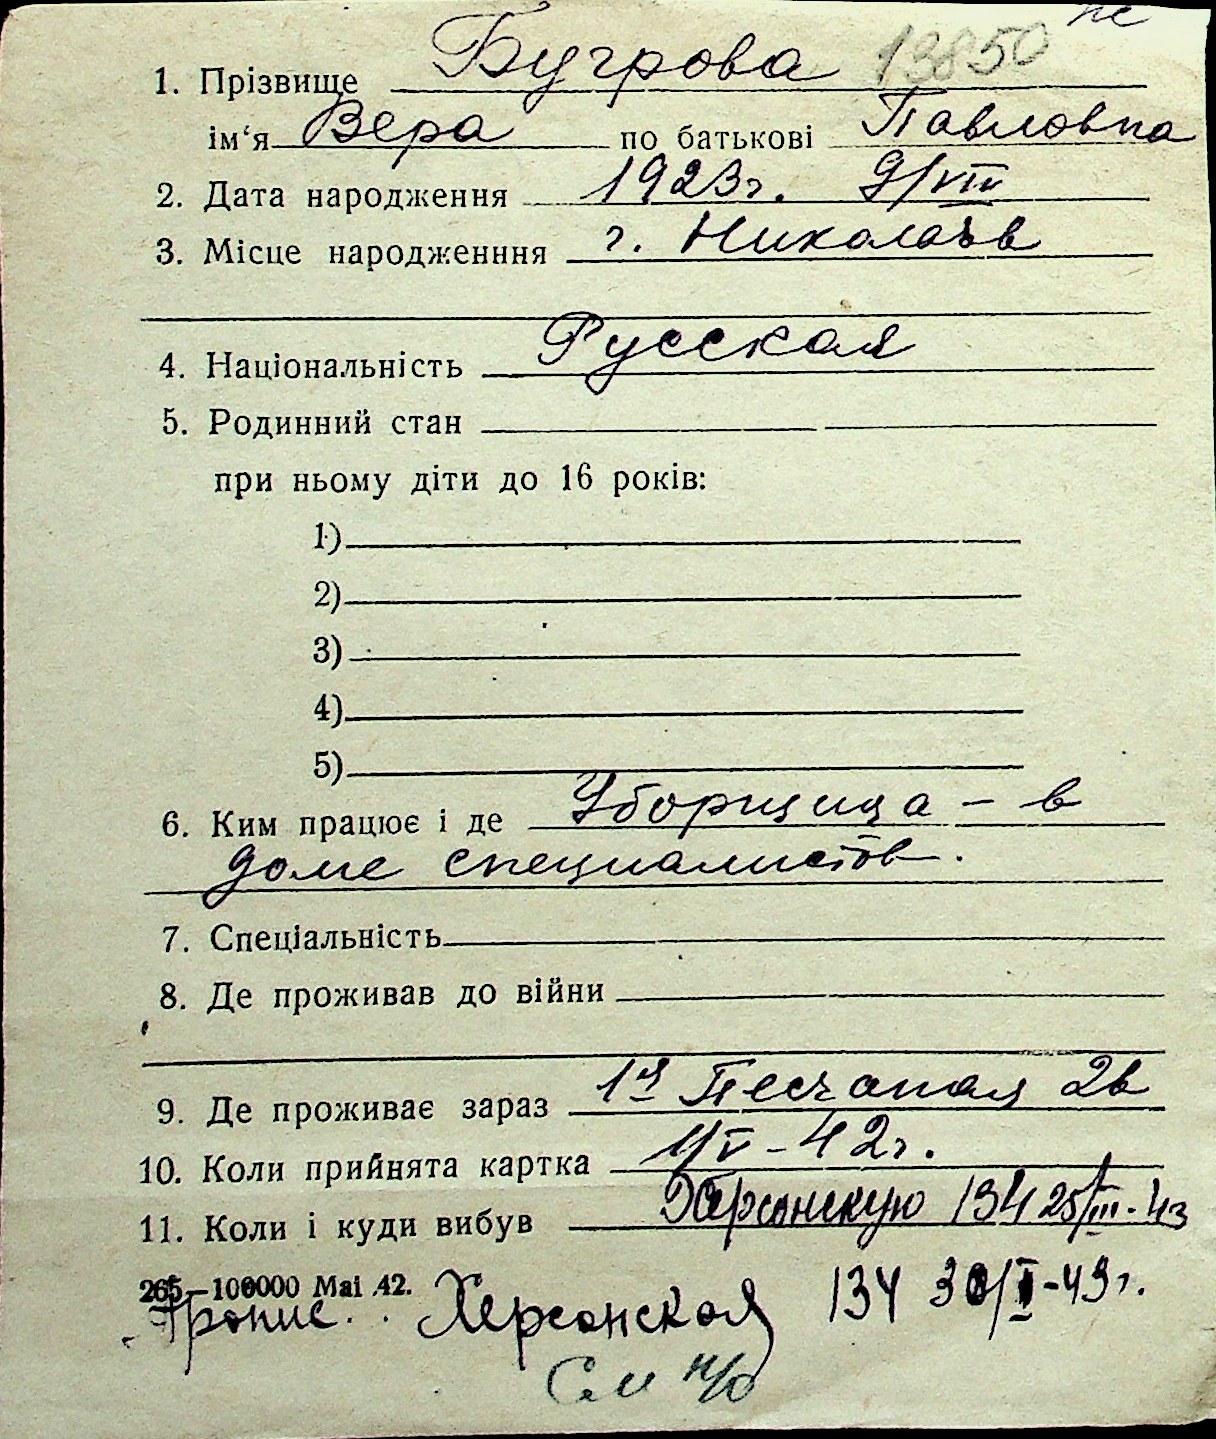 1. Прізвище Бугрова 13850
ім‘я Вера по батькові Павловна
2. Дата народження 1923г. 9/VIII
3. Місце народженння г. Николаев
4. Національність Русская
5. Родинний стан
при ньому діти до 16 років:
1)
2)
3)
4)
5)
6. Ким працює і де Уборщица – в
доме специалистов.
7. Спеціальність
8. Де проживав до війни
9. Де проживає зараз 1я Песчаная 2в
10. Коли прийнята картка 1/V – 42г.
11. Коли і куди вибув Херсонскую 134 25/III-43
265–100000 Mai 42.
Пропис. Херсонская 134 30/I-43г.
См н/о